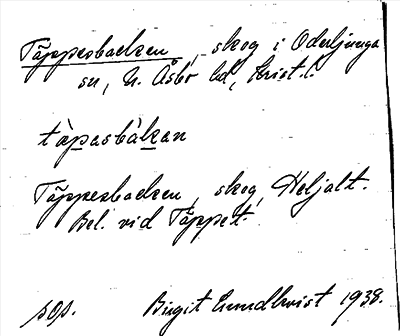 Täppesbacken, skog i Oderljunga
sn, N. Åsbo hd, Krist. l.
täpasbàkan
Täppesbacken, skog, Heljalt.
Bel. vid Täppet.
sos.
Birgit Lundkvist 1938.